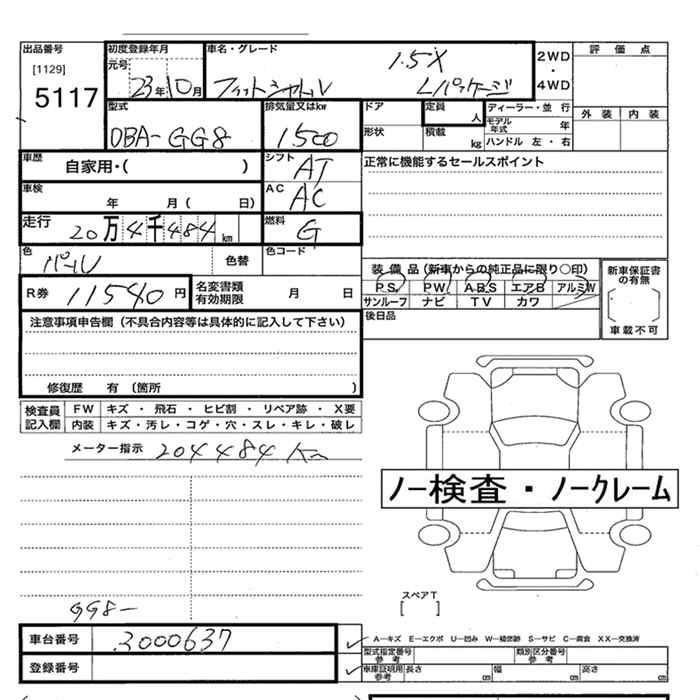 出品番号
[1129]
5117
初度登録年月
元号
23年10月
車名・グレード
1.5X
フィットシャトル Lパッケージ
2WD
・
4WD
評価点
外装 内装
型式
DBA-GG8
排気量又はkw
1500
ドア
形状
定員
人
積載
kg
ディーラー・並 行
モデル年式 年
ハンドル 左・右
車歴
自家用・( )
シフト
AT
正常に機能するセールスポイント
車検
年 月( 日)
AC
AC
走行
20万4千484km
燃料
G
色
パール
色替
色コード
装備品(新車からの純正品に限り○印)
PS PW ABS エアB アルミW
サンルーフ ナビ TV カワ
新車保証書の有無
車載不可
R券 11540円
名変書類有効期限 月 日
後日品
注意事項申告欄(不具合内容等は具体的に記入して下さい)
修復歴 有(箇所 )
検査員記入欄
FW キズ・飛石・ヒビ割・リペア跡・X要
内装 キズ・汚レ・コゲ・穴・スレ・キレ・破レ
メーター指示 204484Km
ノー検査・ノークレーム
スペアT
[ ]
GG8-
車台番号 3000637
登録番号
A-キズ E-エクボ U-凹み W-補修跡 S-サビ C-腐食 XX-交換済
型式指定番号参考
類別区分番号参考
車庫証明用参考 長さ cm 幅 cm 高さ cm